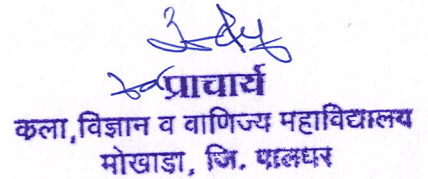 प्राचार्य
कला,विज्ञान व वाणिज्य महाविद्यालय
मोखाडा, जि. पालघर